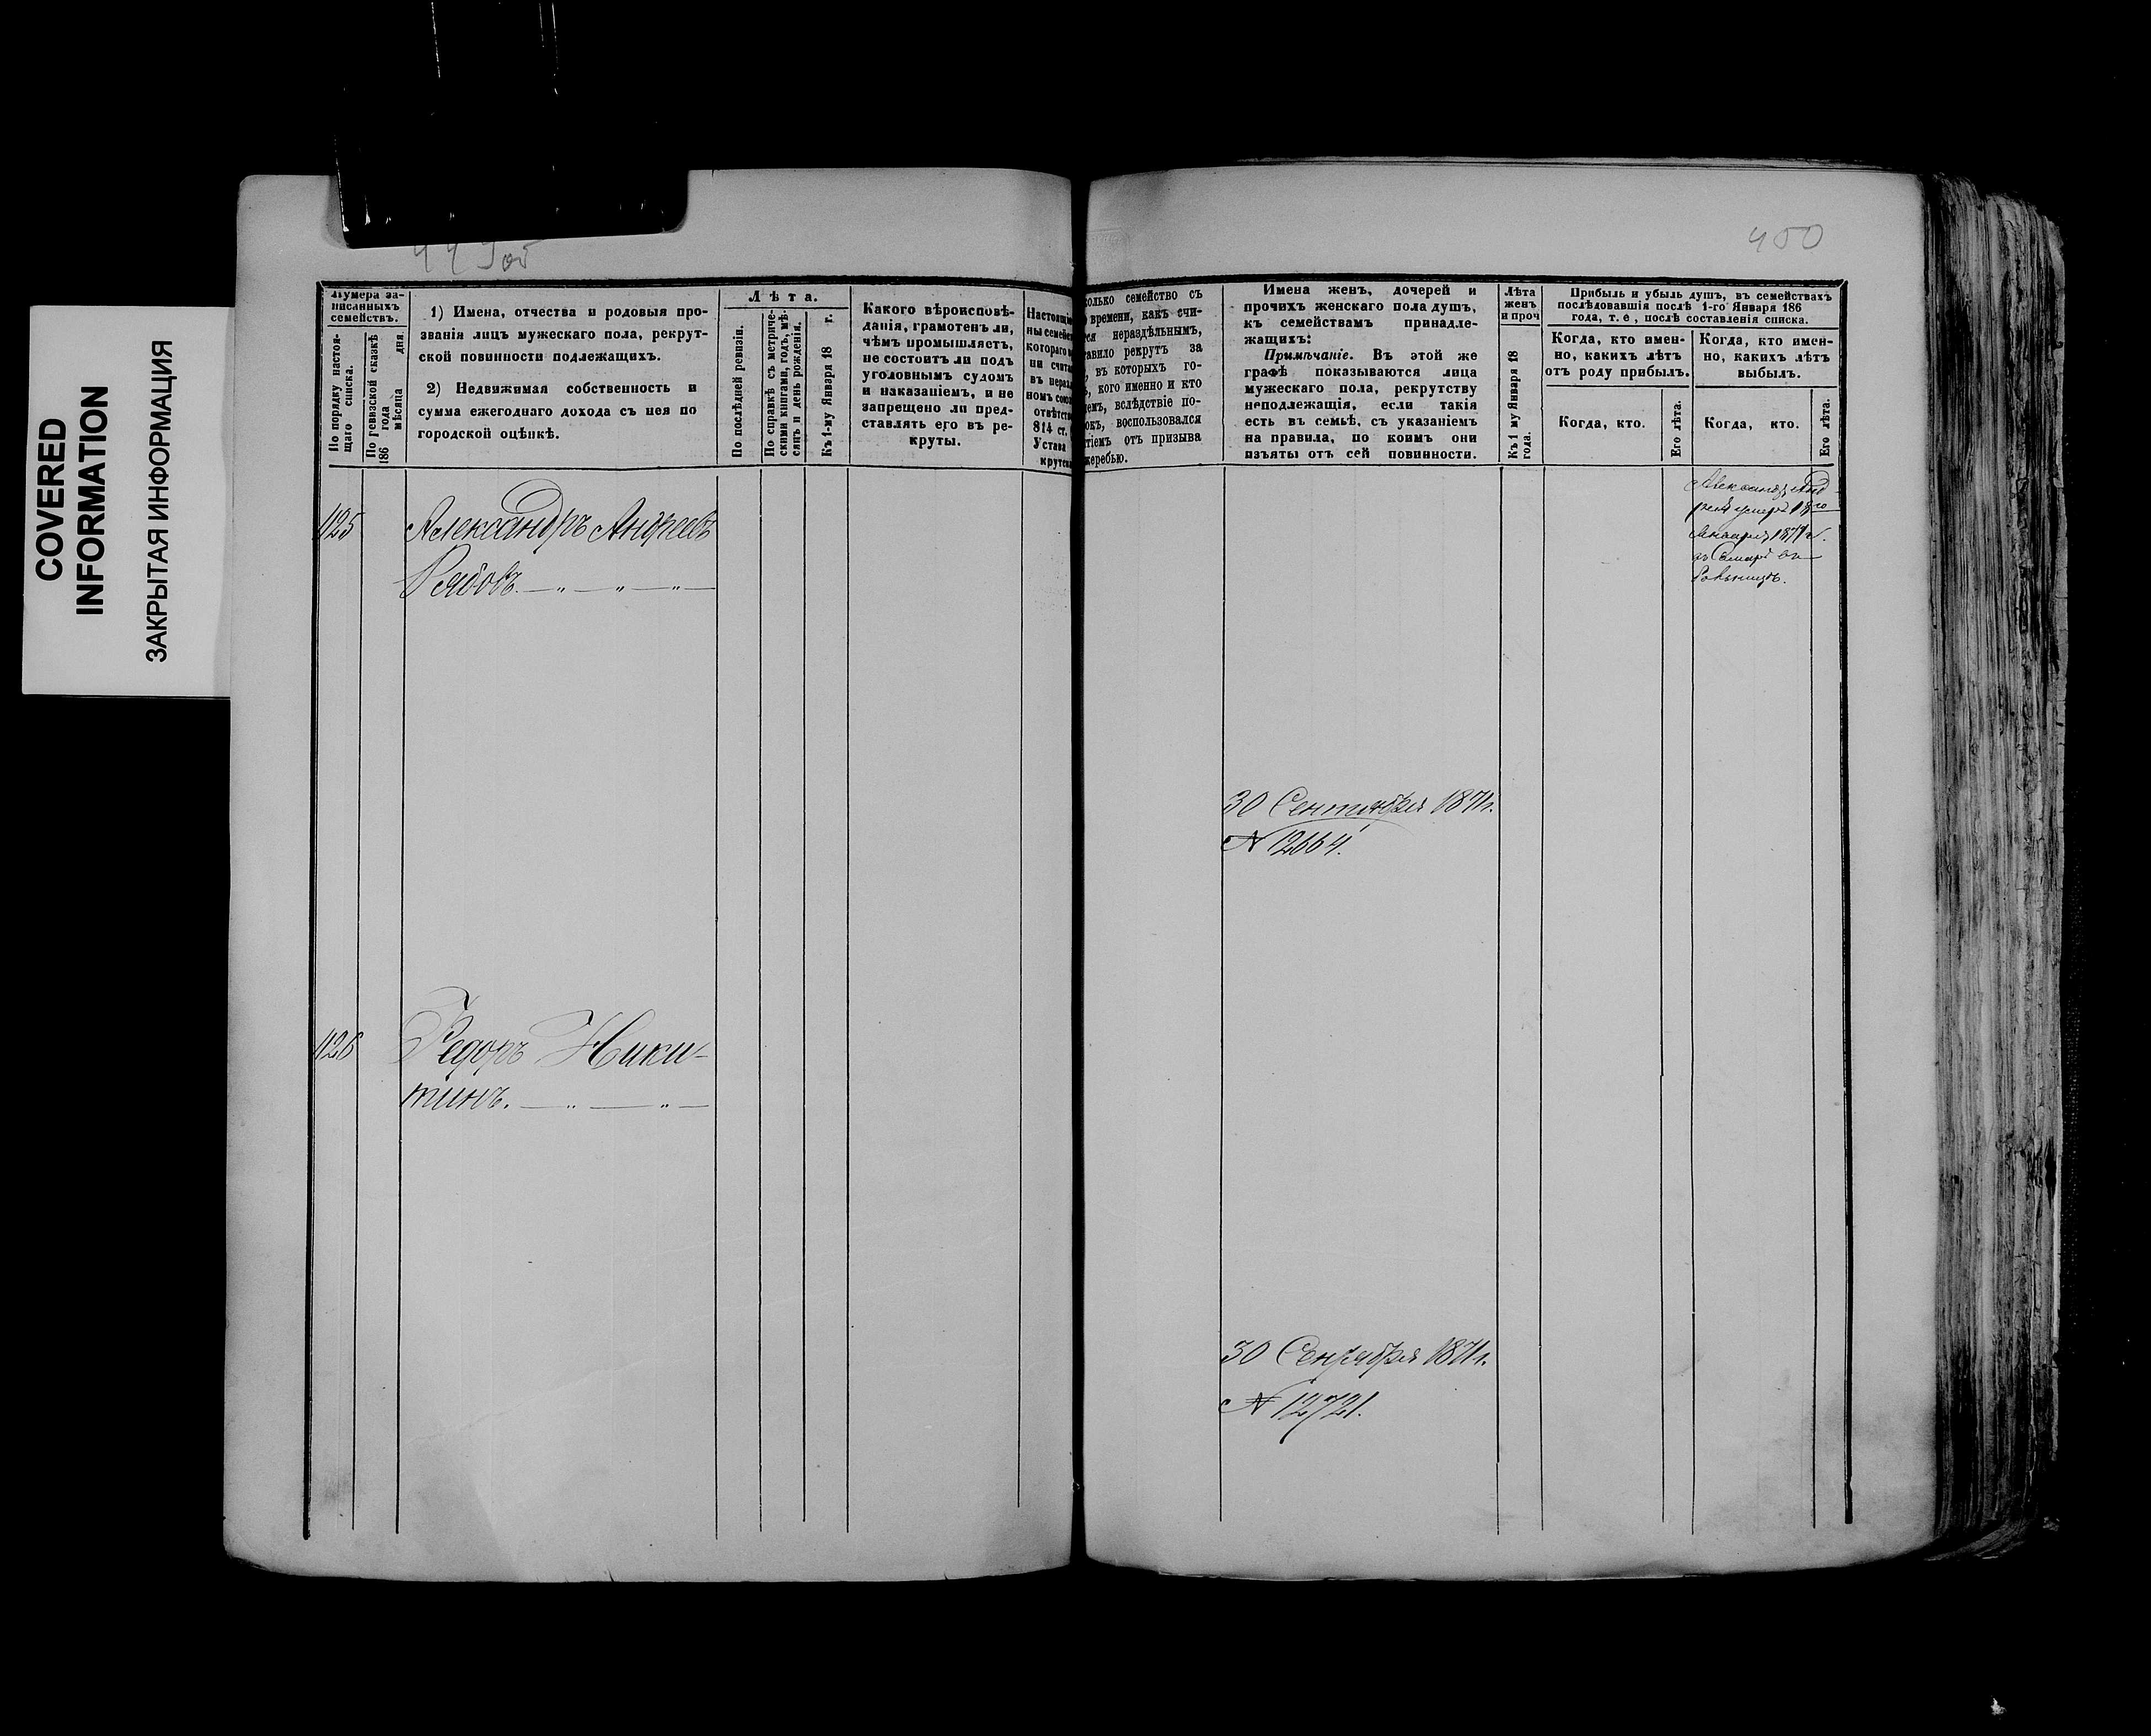 COVERED
INFORMATION
ЗАКРЫТАЯ ИНФОРМАЦИЯ
449 об
450
Нумера за-
писанныхъ
семействъ.
По порядку настоя-
щаго списка.
По ревизской сказкѣ
186 года
мѣсяца дня
1) Имена, отчества и родовыя про-
званія лицъ мужескаго пола, рекрут-
ской повинности подлежащихъ.
2) Недвижимая собственность и
сумма ежегоднаго дохода съ нея по
городской оцѣнкѣ.
Лѣта.
По послѣдней ревизіи.
По справкѣ съ метриче-
скими книгами, годъ, мѣ-
сяцъ и день рожденія.
Къ 1-му Января 18 г.
Какого вѣроисповѣ-
данія, грамотенъ ли,
чѣмъ промышляетъ,
не состоитъ ли подъ
уголовнымъ судомъ
и наказаніемъ, и не
запрещено ли пред-
ставлять его въ ре-
круты.
Настоящі
ны семейс
котораго
ни счита
въ нераз
номъ союз
отвѣтст
814 ст.
Устава
крутск
колько семейство съ
о времени, какъ счи-
тся нераздѣльнымъ,
авило рекрутъ за
въ которыхъ го-
, кого именно и кто
емъ, вслѣдствіе по-
окъ, воспользовался
тіемъ отъ призыва
жеребью.
Имена женъ, дочерей и
прочихъ женскаго пола душъ,
къ семействамъ принадле-
жащихъ:
Примѣчаніе. Въ этой же
графѣ показываются лица
мужескаго пола, рекрутству
неподлежащія, если такія
есть въ семьѣ, съ указаніемъ
на правила, по коимъ они
изъяты отъ сей повинности.
Лѣта
женъ
и проч
Къ 1 му Января 18
года.
Прибыль и убыль душъ, въ семействахъ
послѣдовавшія послѣ 1-го Января 186
года, т. е, послѣ составленія списка.
Когда, кто имен-
но, какихъ лѣтъ
отъ роду прибылъ.
Когда, кто.
Его лѣта.
Когда, кто имен-
но, какихъ лѣтъ
выбылъ.
Когда, кто.
Его лѣта.
1125
Александръ Андреевъ
Рябовъ. — „ — „ — „ —
Александр Анд-
реев умеръ
Января 1871 г.
въ Самар
30 Сентября 1871 г.
N 12664.
1126
Федоръ Ники-
тинъ. — „ — „ —
30 Сентября 1871 г.
N 12721.